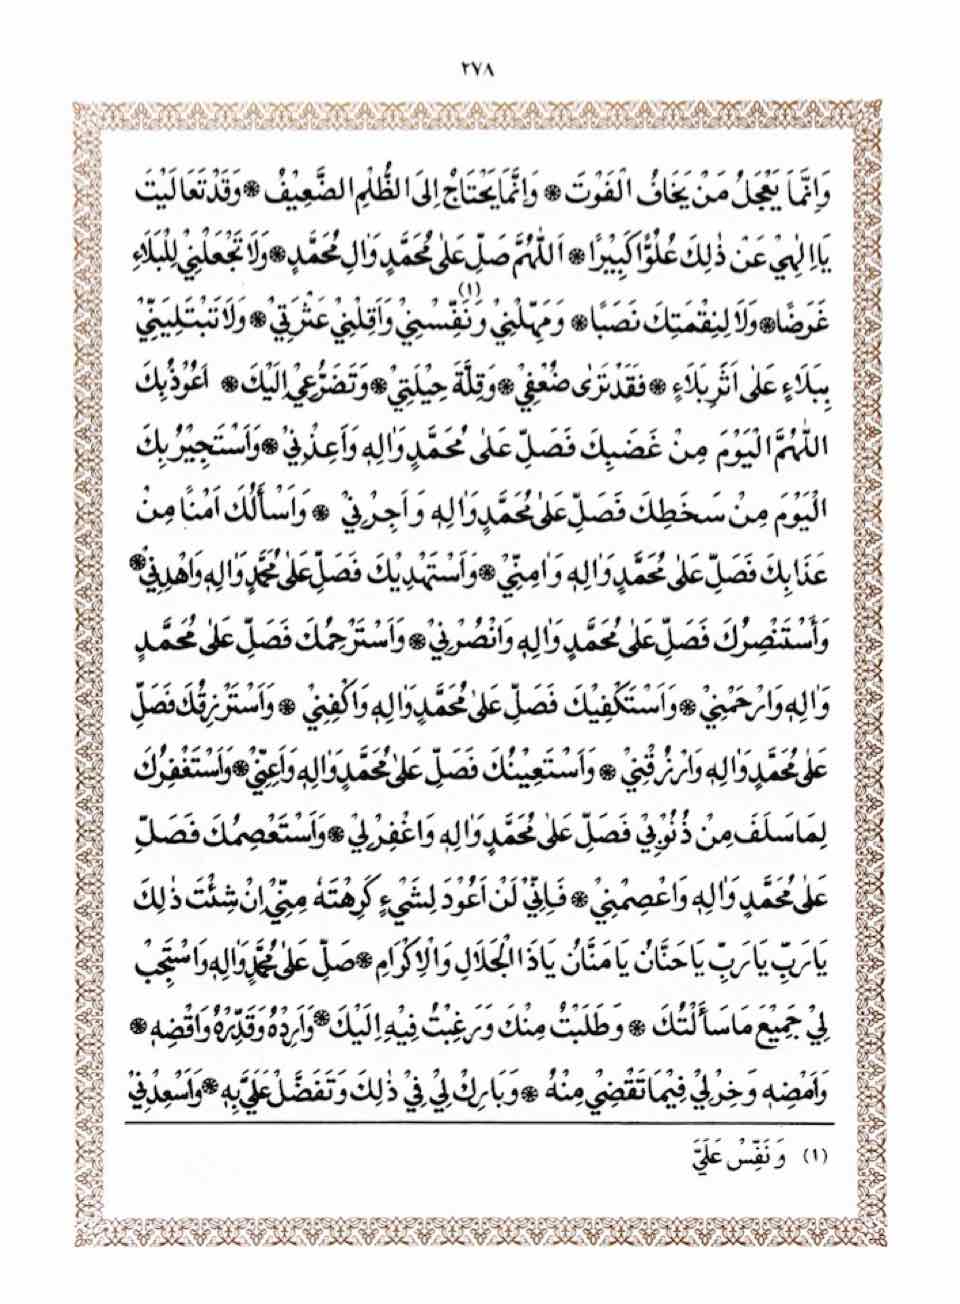 ٢٧٨
وَاِنَّمَا يَعْجَلُ مَنْ يَخَافُ الْفَوْتَ ❋ وَاِنَّمَا يَحْتَاجُ اِلَى الظُّلْمِ الضَّعِيْفُ ❋ وَقَدْ تَعَالَيْتَ
يَا اِلٰهِيْ عَنْ ذٰلِكَ عُلُوًّا كَبِيْرًا ❋ اَللّٰهُمَّ صَلِّ عَلٰى مُحَمَّدٍ وَاٰلِ مُحَمَّدٍ ❋ وَلَا تَجْعَلْنِيْ لِلْبَلَاءِ
غَرَضًا ❋ وَلَا لِنِقْمَتِكَ نَصَبًا ❋ وَمَهِّلْنِيْ وَنَفِّسْنِيْ (١) وَاَقِلْنِيْ عَثْرَتِيْ ❋ وَلَا تَبْتَلِيَنِّيْ
بِبَلَاءٍ عَلٰى اَثَرِ بَلَاءٍ ❋ فَقَدْ تَرٰى ضُعْفِيْ ❋ وَقِلَّةَ حِيْلَتِيْ ❋ وَتَضَرُّعِيْ اِلَيْكَ ❋ اَعُوْذُ بِكَ
اللّٰهُمَّ الْيَوْمَ مِنْ غَضَبِكَ فَصَلِّ عَلٰى مُحَمَّدٍ وَاٰلِهٖ وَاَعِذْنِيْ ❋ وَاَسْتَجِيْرُ بِكَ
الْيَوْمَ مِنْ سَخَطِكَ فَصَلِّ عَلٰى مُحَمَّدٍ وَاٰلِهٖ وَاَجِرْنِيْ ❋ وَاَسْأَلُكَ اَمْنًا مِنْ
عَذَابِكَ فَصَلِّ عَلٰى مُحَمَّدٍ وَاٰلِهٖ وَاٰمِنِّيْ ❋ وَاَسْتَهْدِيْكَ فَصَلِّ عَلٰى مُحَمَّدٍ وَاٰلِهٖ وَاهْدِنِيْ ❋
وَأَسْتَنْصِرُكَ فَصَلِّ عَلٰى مُحَمَّدٍ وَاٰلِهٖ وَانْصُرْنِيْ ❋ وَاَسْتَرْحِمُكَ فَصَلِّ عَلٰى مُحَمَّدٍ
وَاٰلِهٖ وَارْحَمْنِيْ ❋ وَاَسْتَكْفِيْكَ فَصَلِّ عَلٰى مُحَمَّدٍ وَاٰلِهٖ وَاكْفِنِيْ ❋ وَاَسْتَرْزِقُكَ فَصَلِّ
عَلٰى مُحَمَّدٍ وَاٰلِهٖ وَارْزُقْنِيْ ❋ وَاَسْتَعِيْنُكَ فَصَلِّ عَلٰى مُحَمَّدٍ وَاٰلِهٖ وَاَعِنِّيْ ❋ وَاَسْتَغْفِرُكَ
لِمَا سَلَفَ مِنْ ذُنُوْبِيْ فَصَلِّ عَلٰى مُحَمَّدٍ وَاٰلِهٖ وَاغْفِرْ لِيْ ❋ وَاَسْتَعْصِمُكَ فَصَلِّ
عَلٰى مُحَمَّدٍ وَاٰلِهٖ وَاعْصِمْنِيْ ❋ فَاِنِّيْ لَنْ اَعُوْدَ لِشَيْءٍ كَرِهْتَهُ مِنِّيْ اِنْ شِئْتَ ذٰلِكَ
يَا رَبِّ يَا رَبِّ يَا حَنَّانُ يَا مَنَّانُ يَا ذَا الْجَلَالِ وَالْاِكْرَامِ ❋ صَلِّ عَلٰى مُحَمَّدٍ وَاٰلِهٖ وَاسْتَجِبْ
لِيْ جَمِيْعَ مَا سَأَلْتُكَ ❋ وَطَلَبْتُ مِنْكَ وَرَغِبْتُ فِيْهِ اِلَيْكَ ❋ وَاَرِدْهُ وَقَدِّرْهُ وَاقْضِهٖ ❋
وَاَمْضِهٖ وَخِرْ لِيْ فِيْمَا تَقْضِيْ مِنْهُ ❋ وَبَارِكْ لِيْ فِيْ ذٰلِكَ وَتَفَضَّلْ عَلَيَّ بِهٖ ❋ وَاَسْعِدْنِيْ
(١) وَنَفِّسْ عَلَيَّ